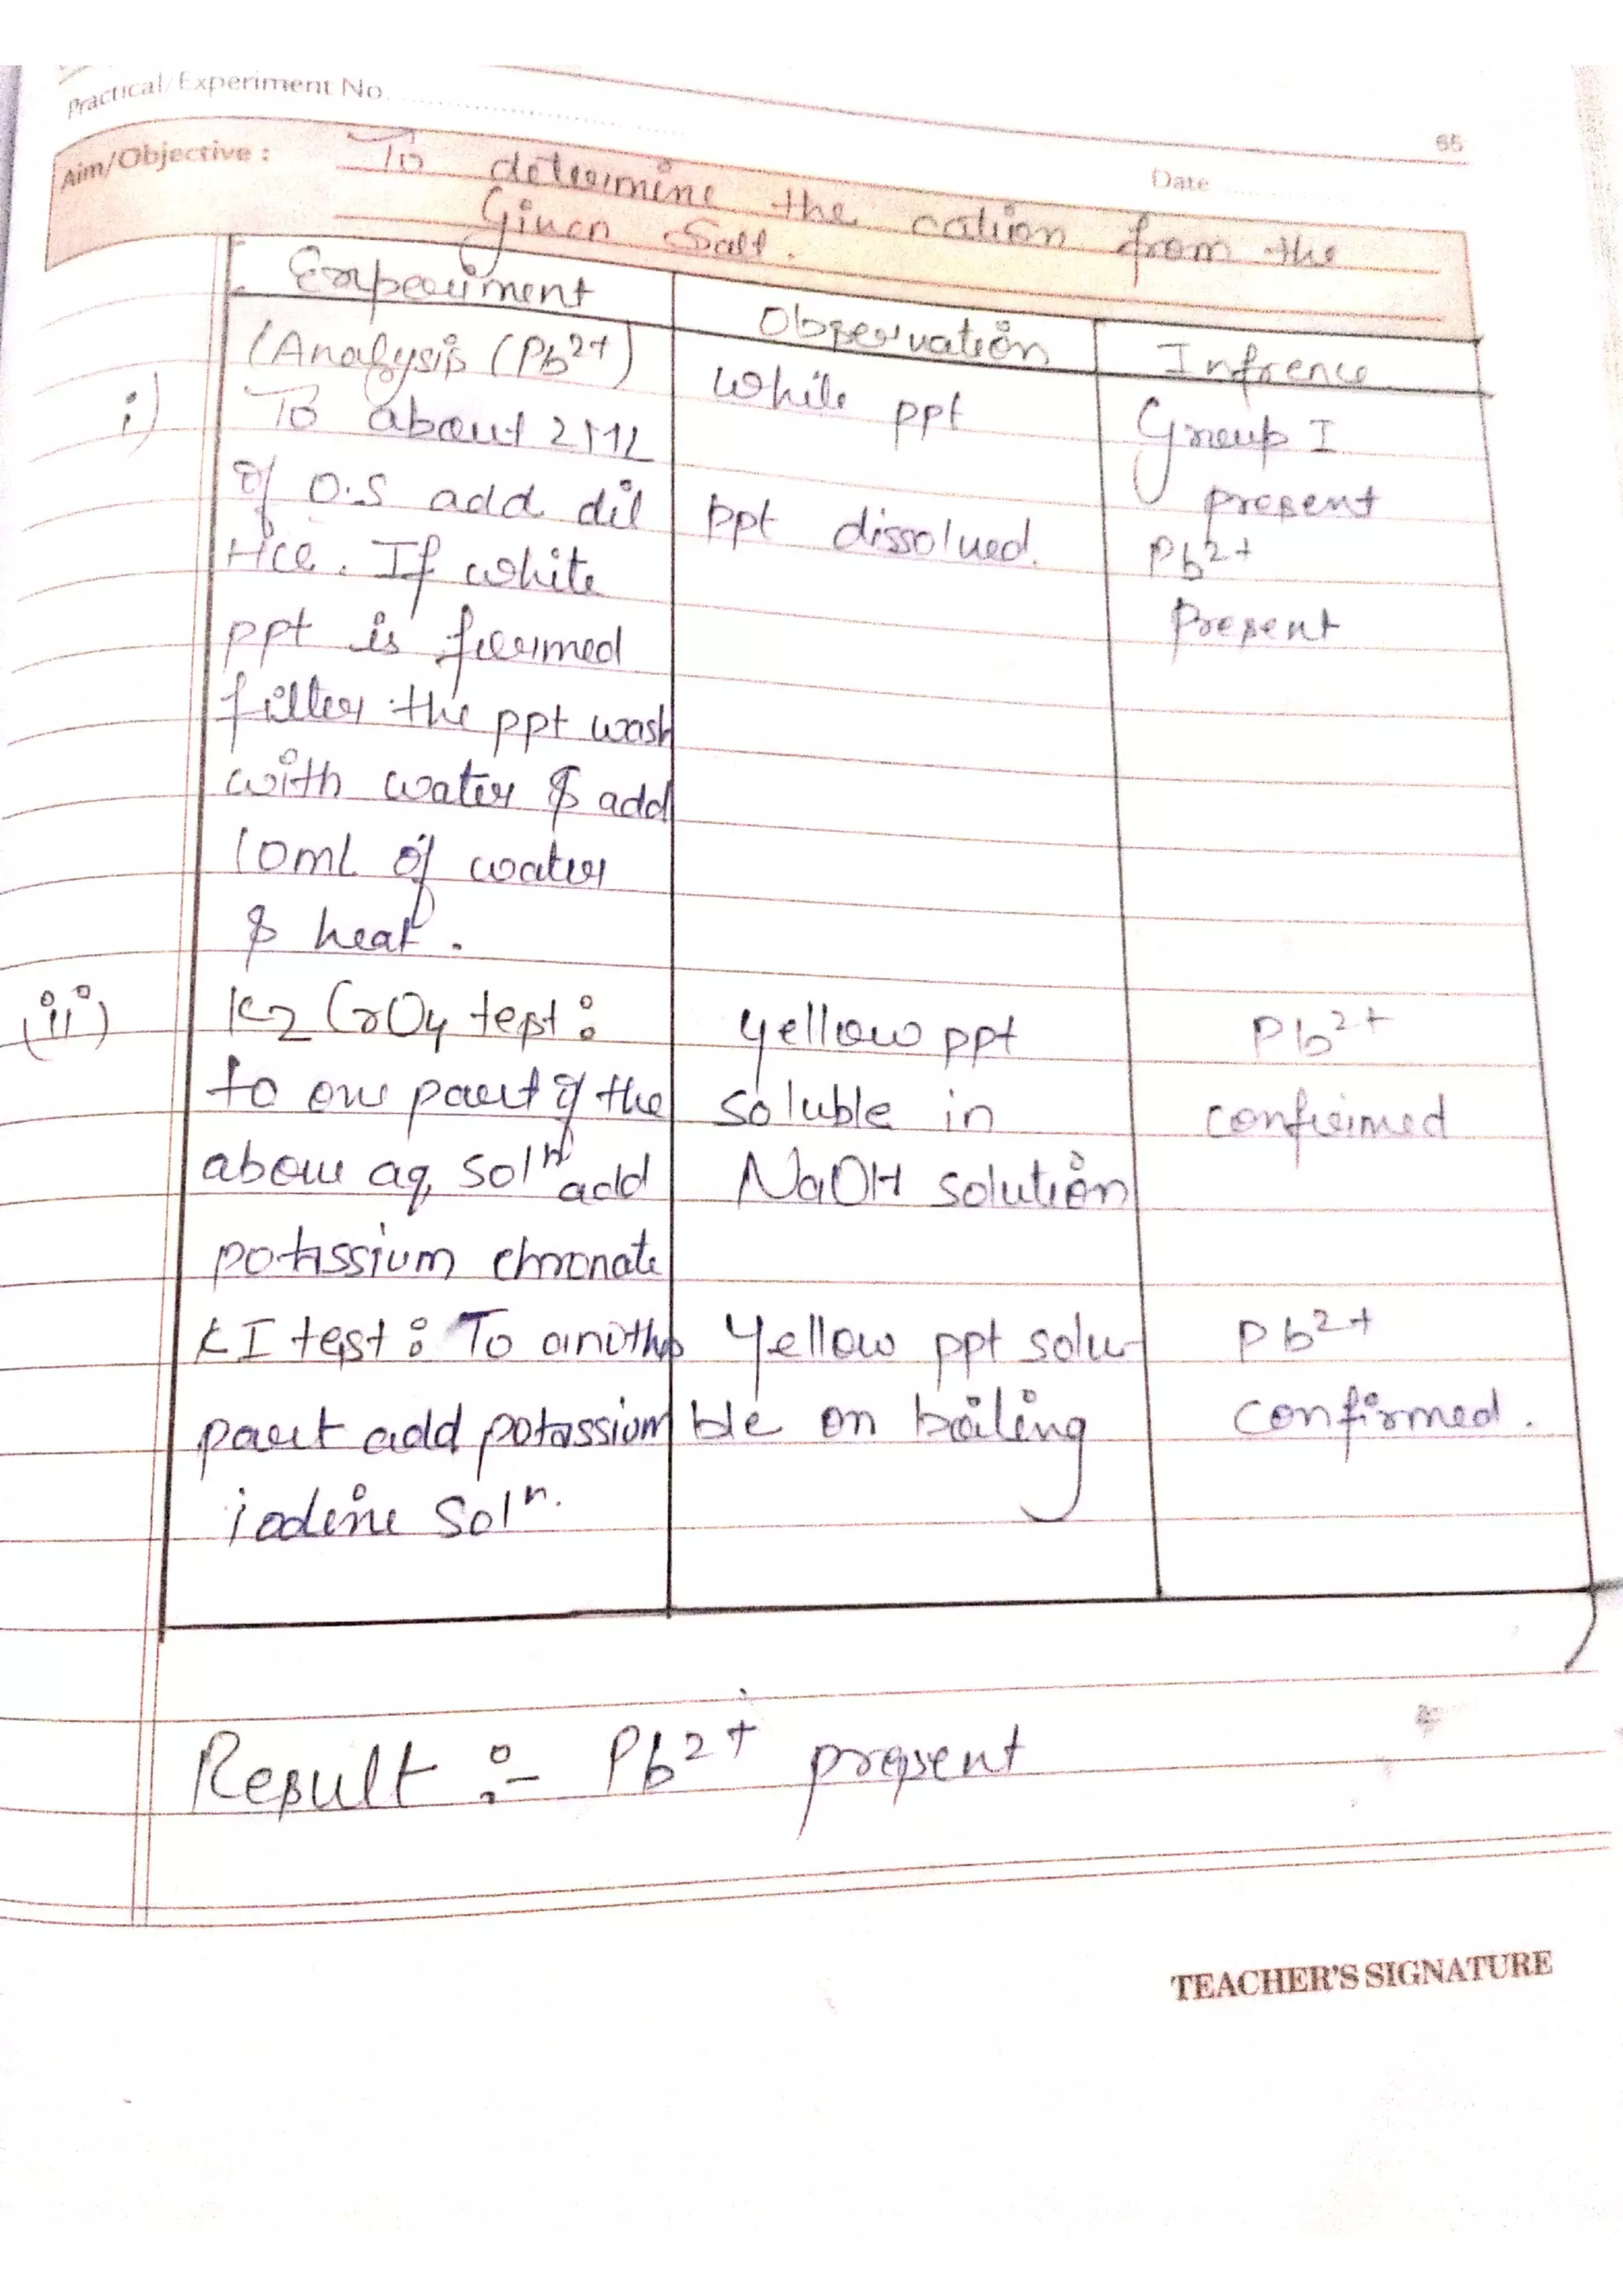 Practical/Experiment No.
65
Date
Aim/Objective : To determine the cation from the
Given Salt.
Experiment
Observation
Infrence
(Analysis (Pb2+)
i) To about 2ML
of O.S add dil
HCl. If white
ppt is formed
filter the ppt wash
with water & add
10mL of water
& heat.
white ppt
ppt dissolved.
Group I
present
Pb2+
Present
(ii) K2 CrO4 test :
to one part of the
above aq sol^n add
potassium chromate
yellow ppt
soluble in
NaOH solution
Pb2+
confirmed
KI test : To another
part add potassium
iodine Sol^n.
Yellow ppt solu-
ble on boiling
Pb2+
confirmed.
Result :- Pb2+ present
TEACHER'S SIGNATURE